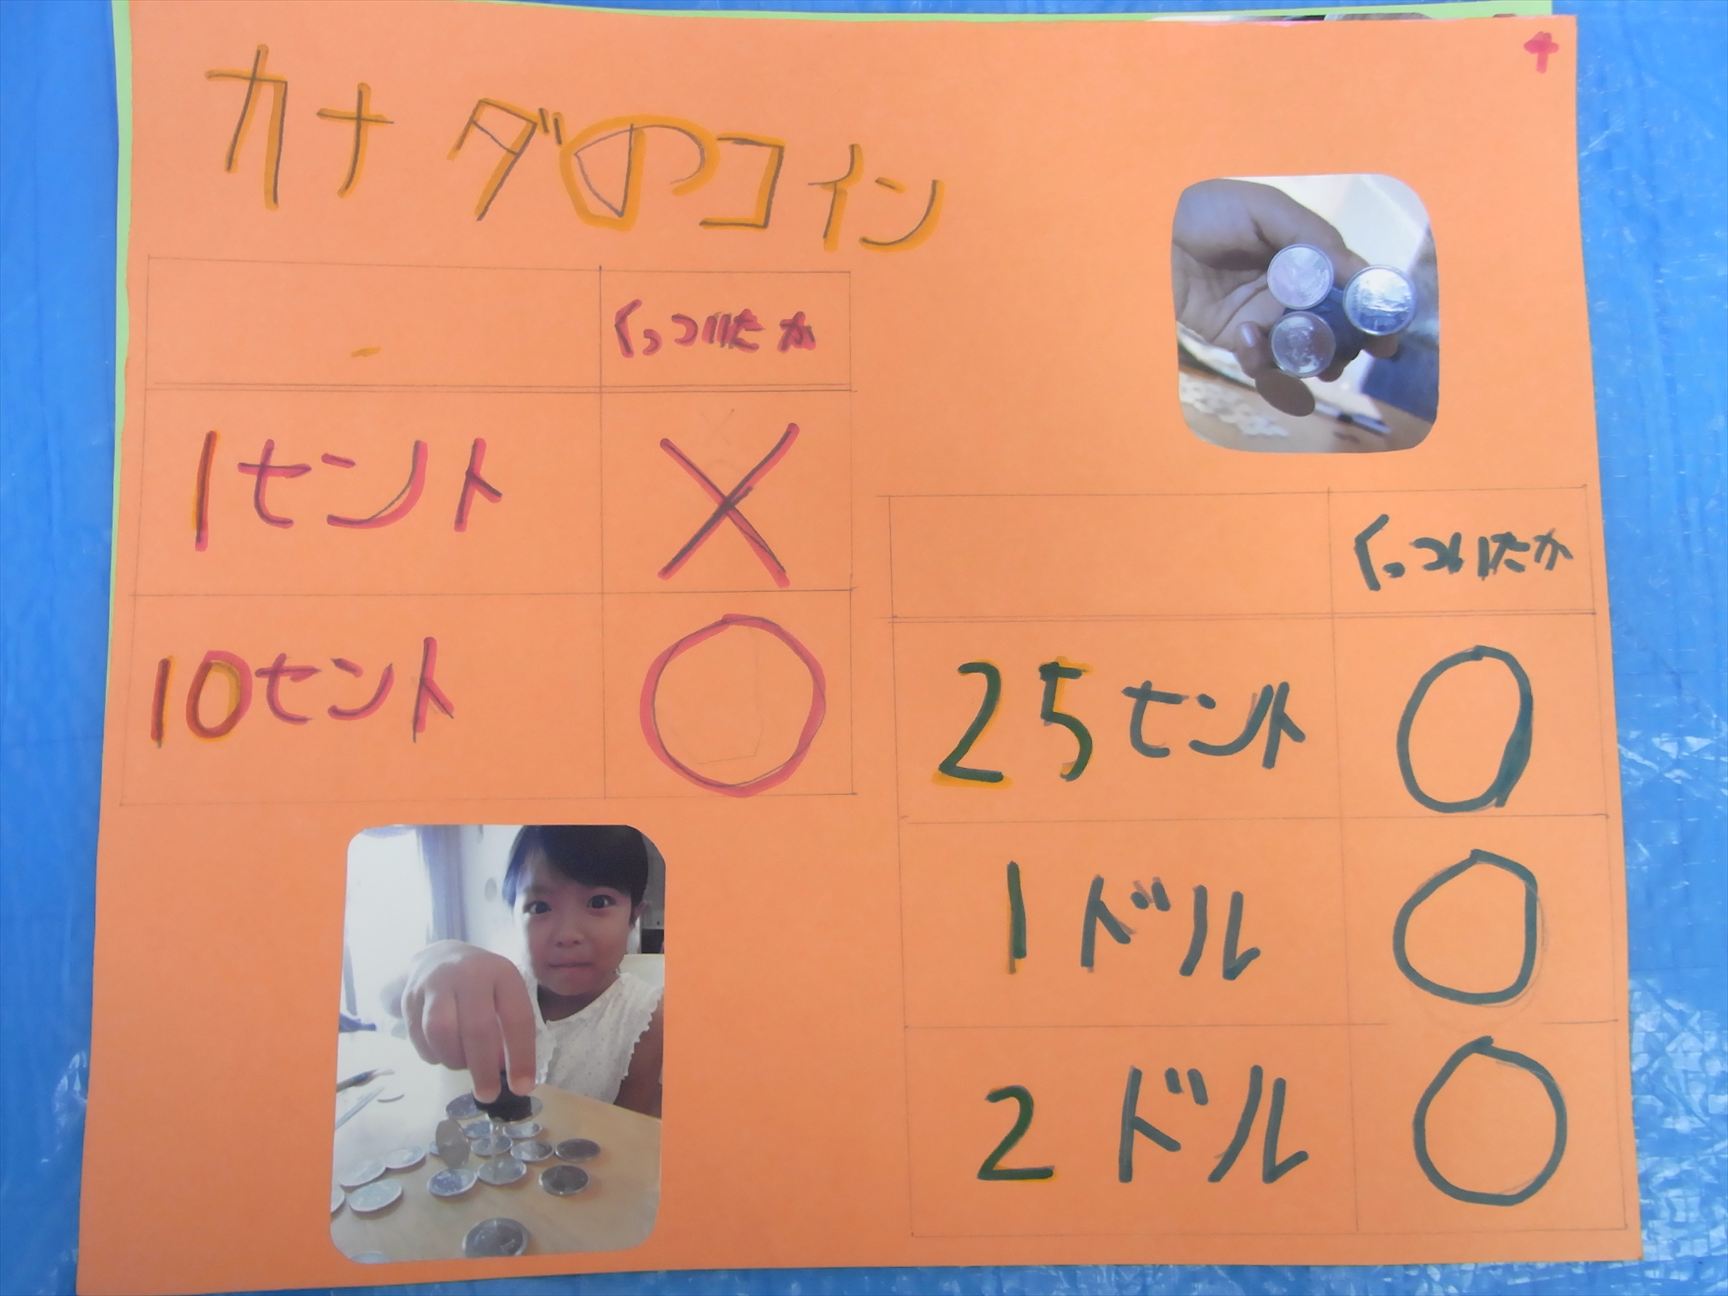 4
カナダのコイン
くっついたか
1セント ×
10セント ○
くっついたか
25セント ○
1ドル ○
2ドル ○